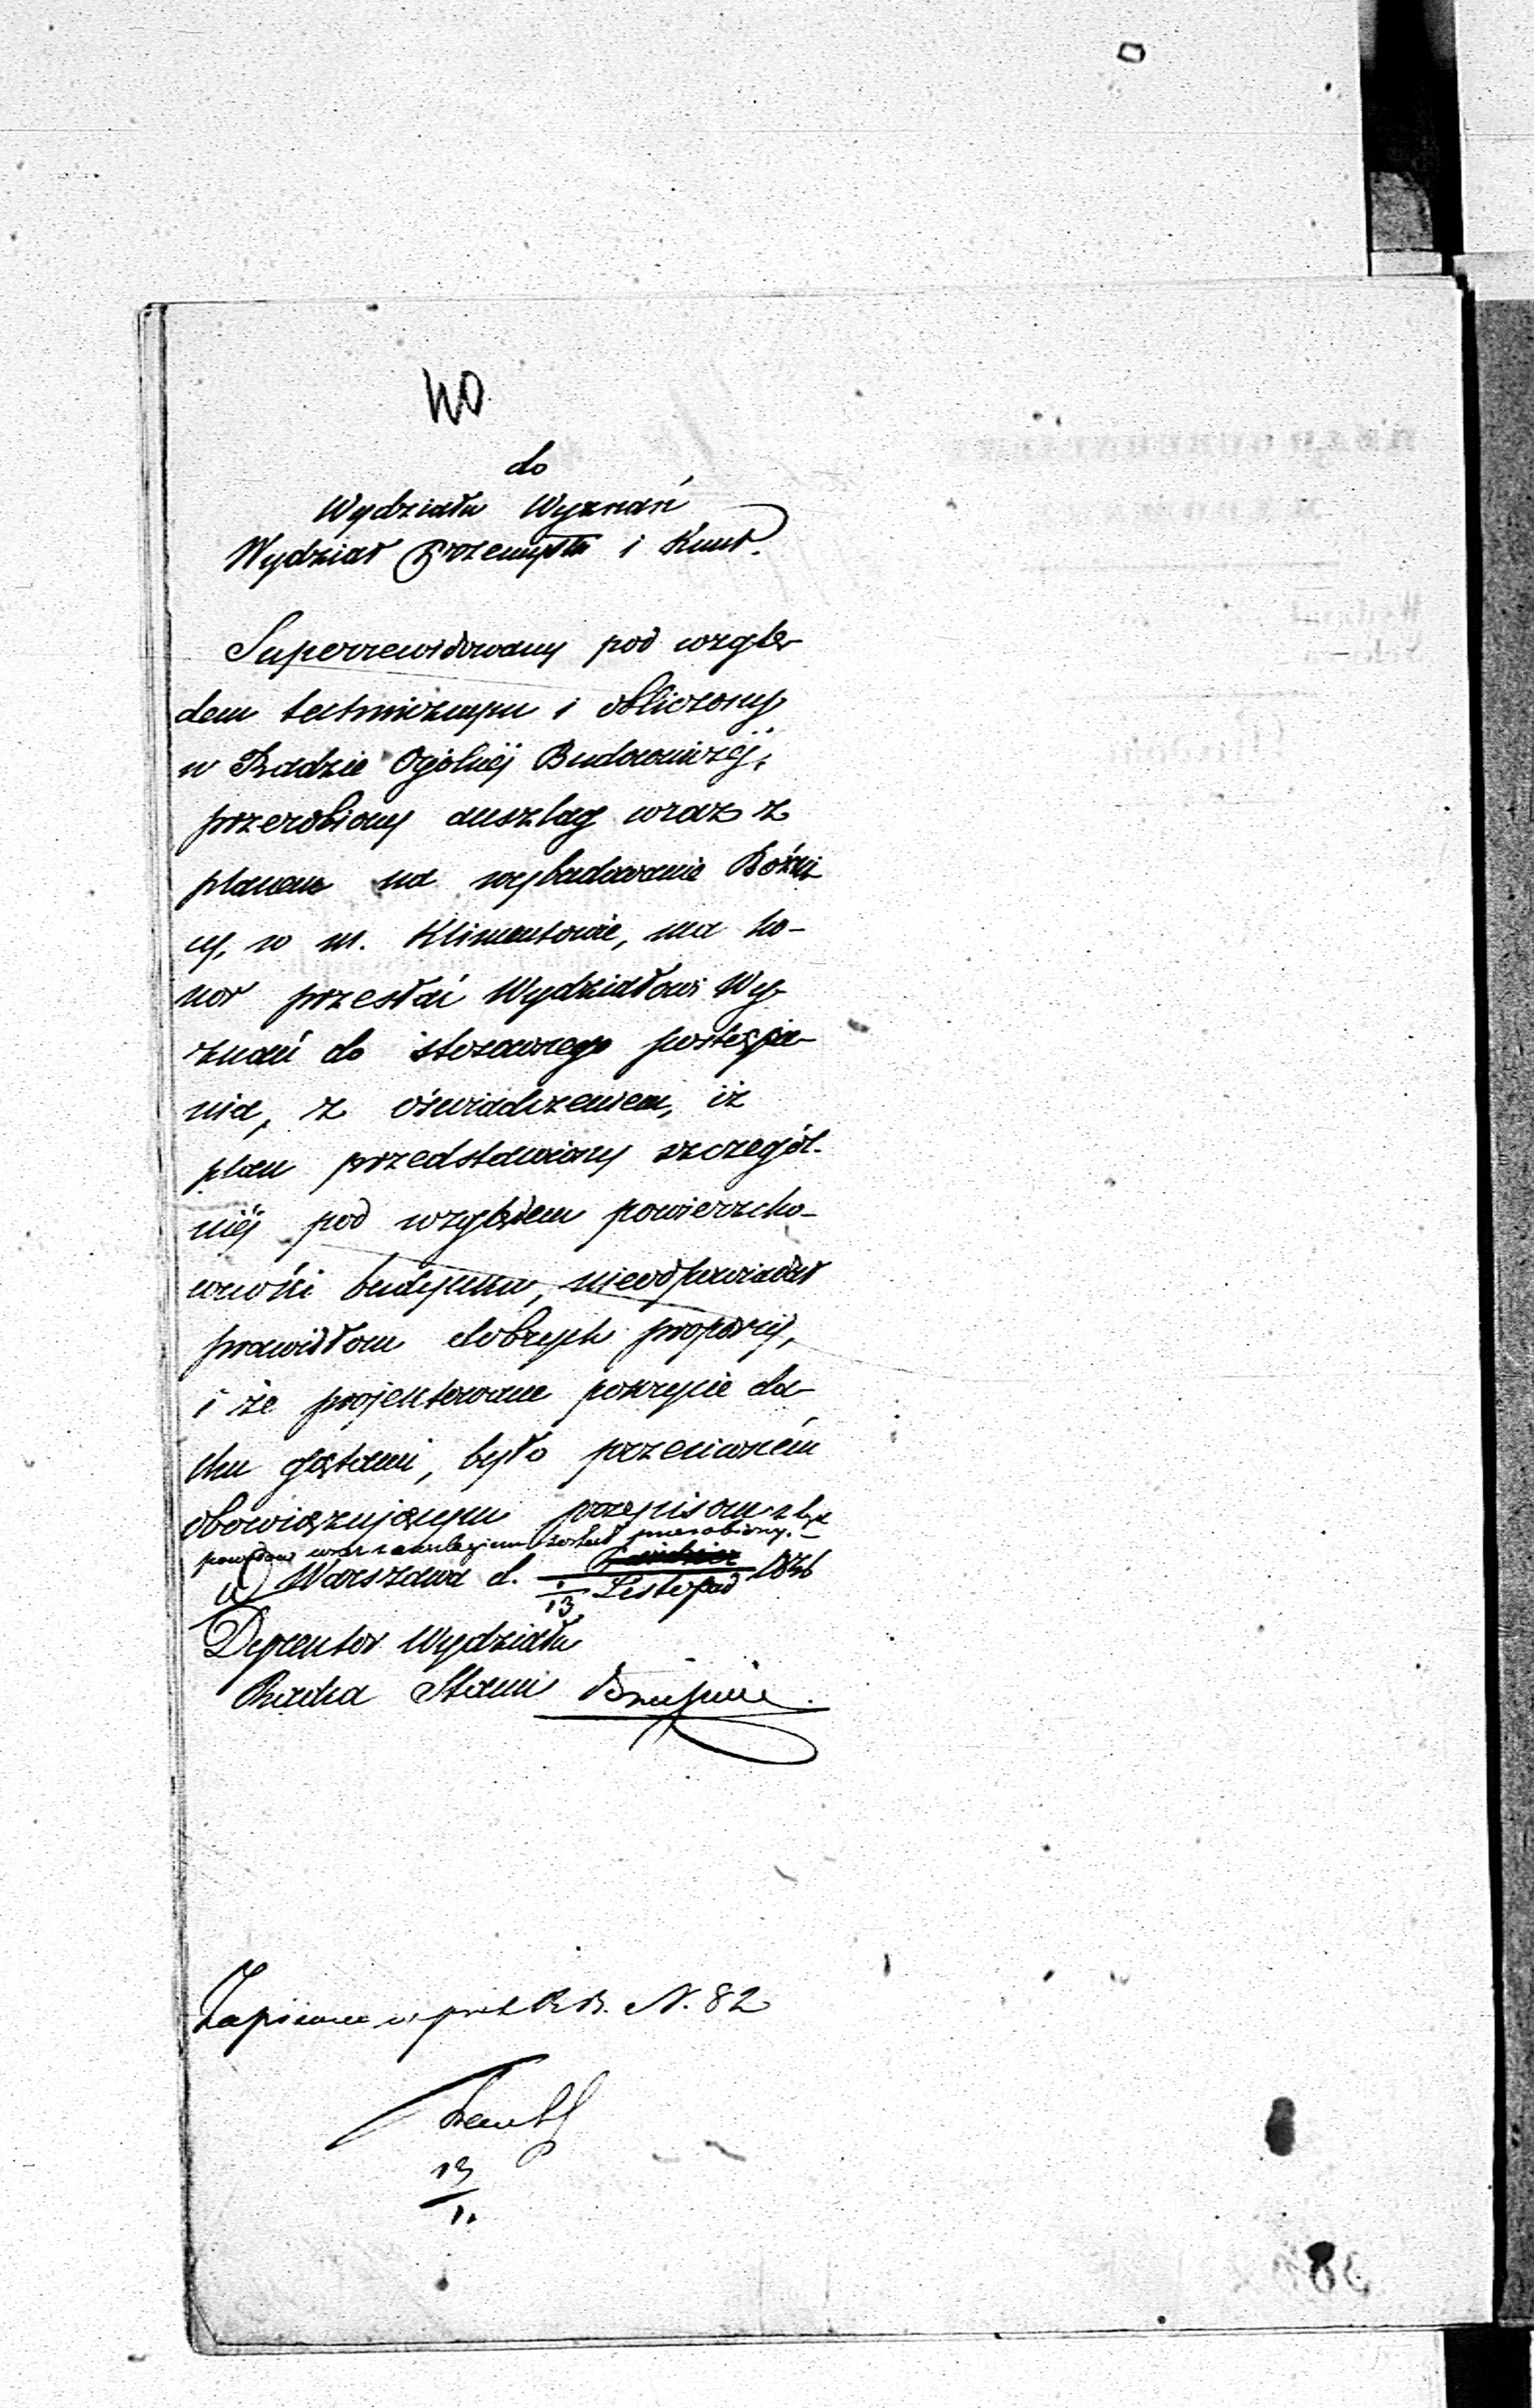 40
do
Wydziału Wyznań
Wydział Przemysłu i Kunt.
Superrewidowany pod wzglę-
dem technicznym i obliczony
w Radzie Ogólnéj Budowniczéj,
przerobiony anszlag wraz z
planem na wybudowanie Bóżni
cy, w m. Klimontowie, ma ho-
nor przesłać Wydziałowi Wy-
znań do stosownego postępo-
nia, z oświadczeniem, iż
plan przedstawiony szczegól-
niéj pod względem powierzcho-
wności budynku, nieodpowiadał
prawidłom dobrych proporcij,
i że projektowane pokrycie da-
chu gątami, było przeciwném
obowiązującym przepisom z tych
powodów wraz z anszlagiem został przerobiony.
Warszawa d. 1/13 Listopad 1846
Dyrektor Wydziału
Radca Stanu
Zapisane w prot R. B. N. 82
13